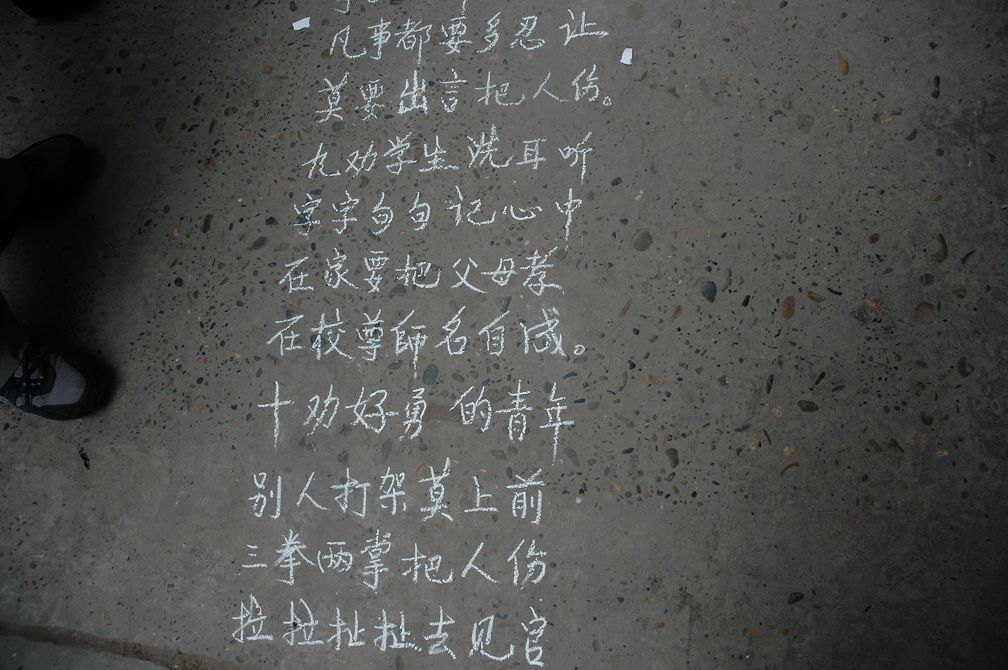 凡事都要多忍让
莫要出言把人伤。
九劝学生洗耳听
字字句句记心中
在家要把父母孝
在校尊師名自成。
十劝好勇的青年
别人打架莫上前
三拳两掌把人伤
拉拉扯扯去见官